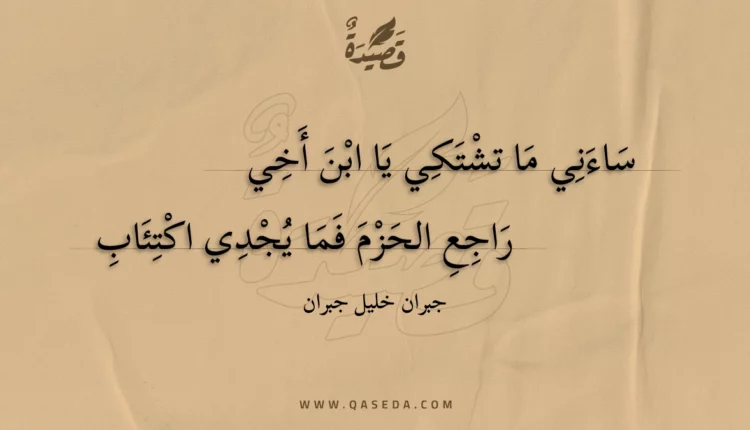 قَصِيدَةٌ
سَاءَنِي مَا تشْتَكِي يَا ابْنَ أَخِي
رَاجِعِ الحَزْمَ فَمَا يُجْدِي اكْتِئَابِ
جبران خليل جبران
WWW.QASEDA.COM